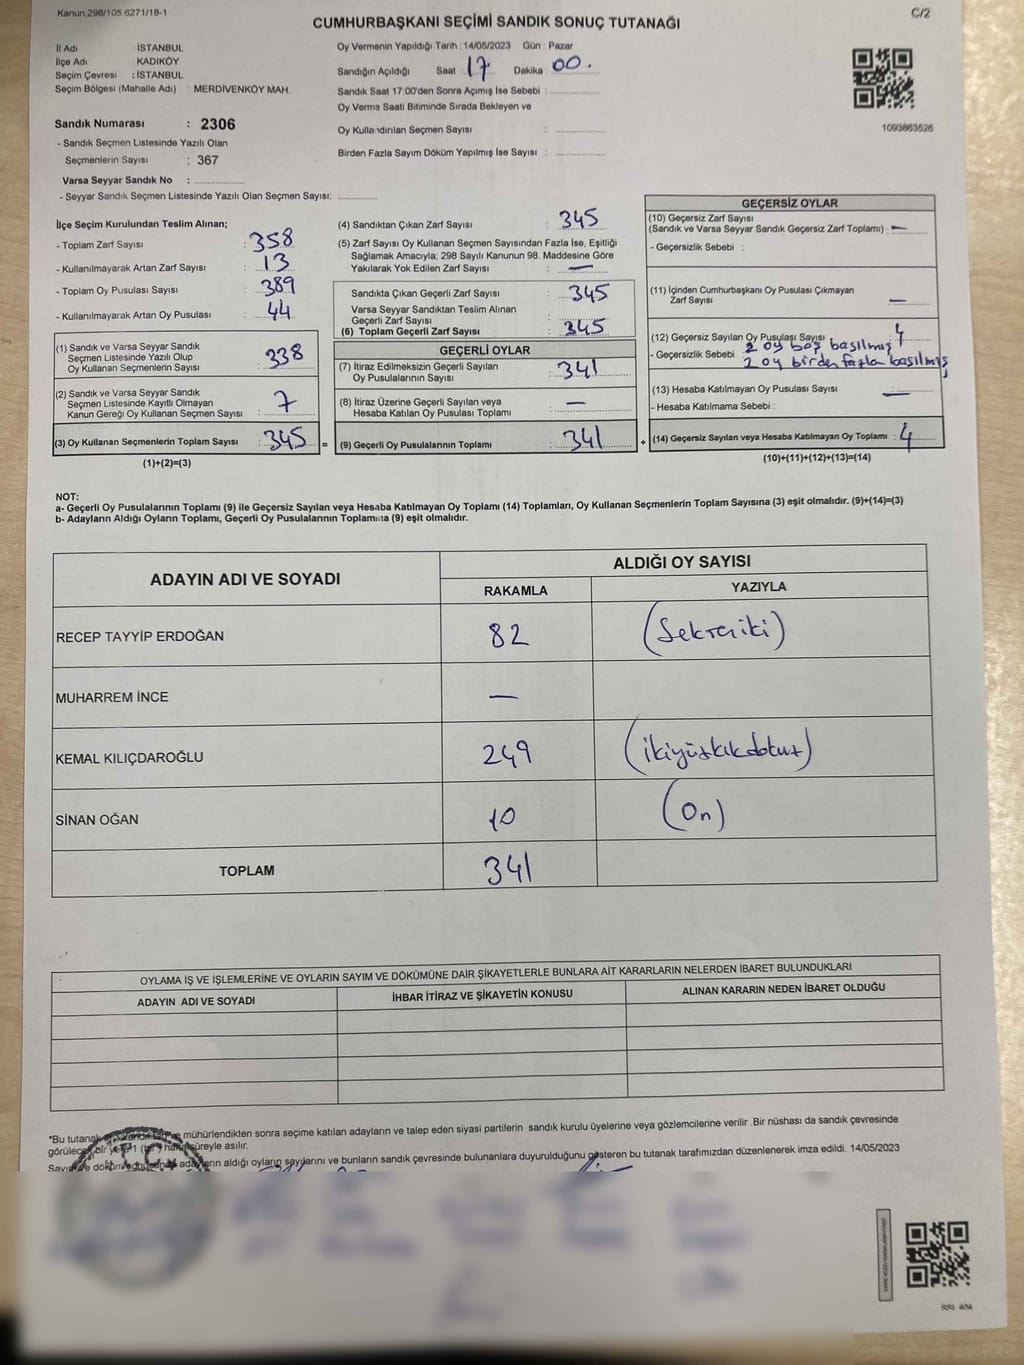 Kanun:298/105 6271/18-1
C/2
CUMHURBAŞKANI SEÇİMİ SANDIK SONUÇ TUTANAĞI
İl Adı : İSTANBUL
İlçe Adı : KADIKÖY
Seçim Çevresi : İSTANBUL
Seçim Bölgesi (Mahalle Adı) : MERDİVENKÖY MAH.
Sandık Numarası : 2306
- Sandık Seçmen Listesinde Yazılı Olan
Seçmenlerin Sayısı : 367
Varsa Seyyar Sandık No :
- Seyyar Sandık Seçmen Listesinde Yazılı Olan Seçmen Sayısı:
Oy Vermenin Yapıldığı Tarih : 14/05/2023 Gün : Pazar
Sandığın Açıldığı Saat 17 Dakika 00.
Sandık Saat 17:00'den Sonra Açımış İse Sebebi :
Oy Verme Saati Bitiminde Sırada Bekleyen ve
Oy Kullandırılan Seçmen Sayısı :
Birden Fazla Sayım Döküm Yapılmış İse Sayısı :
1093863526
İlçe Seçim Kurulundan Teslim Alınan;
- Toplam Zarf Sayısı : 358
- Kullanılmayarak Artan Zarf Sayısı : 13
- Toplam Oy Pusulası Sayısı : 389
- Kullanılmayarak Artan Oy Pusulası : 44
(1) Sandık ve Varsa Seyyar Sandık
Seçmen Listesinde Yazılı Olup
Oy Kullanan Seçmenlerin Sayısı : 338
(2) Sandık ve Varsa Seyyar Sandık
Seçmen Listesinde Kayıtlı Olmayan
Kanun Gereği Oy Kullanan Seçmen Sayısı : 7
(3) Oy Kullanan Seçmenlerin Toplam Sayısı : 345 =
(1)+(2)=(3)
(4) Sandıktan Çıkan Zarf Sayısı : 345
(5) Zarf Sayısı Oy Kullanan Seçmen Sayısından Fazla İse, Eşitliği
Sağlamak Amacıyla; 298 Sayılı Kanunun 98. Maddesine Göre
Yakılarak Yok Edilen Zarf Sayısı : —
Sandıkta Çıkan Geçerli Zarf Sayısı : 345
Varsa Seyyar Sandıktan Teslim Alınan
Geçerli Zarf Sayısı :
(6) Toplam Geçerli Zarf Sayısı : 345
GEÇERLİ OYLAR
(7) İtiraz Edilmeksizin Geçerli Sayılan
Oy Pusulalarının Sayısı : 341
(8) İtiraz Üzerine Geçerli Sayılan veya
Hesaba Katılan Oy Pusulası Toplamı : —
(9) Geçerli Oy Pusulalarının Toplamı : 341 +
GEÇERSİZ OYLAR
(10) Geçersiz Zarf Sayısı
(Sandık ve Varsa Seyyar Sandık Geçersiz Zarf Toplamı) : —
- Geçersizlik Sebebi :
(11) İçinden Cumhurbaşkanı Oy Pusulası Çıkmayan
Zarf Sayısı : —
(12) Geçersiz Sayılan Oy Pusulası Sayısı : 4
- Geçersizlik Sebebi : 2 oy boş basılmış
2 oy birden fazla basılmış
(13) Hesaba Katılmayan Oy Pusulası Sayısı : —
- Hesaba Katılmama Sebebi :
(14) Geçersiz Sayılan veya Hesaba Katılmayan Oy Toplamı : 4
(10)+(11)+(12)+(13)=(14)
NOT:
a- Geçerli Oy Pusulalarının Toplamı (9) ile Geçersiz Sayılan veya Hesaba Katılmayan Oy Toplamı (14) Toplamları, Oy Kullanan Seçmenlerin Toplam Sayısına (3) eşit olmalıdır. (9)+(14)=(3)
b- Adayların Aldığı Oyların Toplamı, Geçerli Oy Pusulalarının Toplamına (9) eşit olmalıdır.
ADAYIN ADI VE SOYADI
ALDIĞI OY SAYISI
RAKAMLA YAZIYLA
RECEP TAYYİP ERDOĞAN 82 (Sekseniki)
MUHARREM İNCE —
KEMAL KILIÇDAROĞLU 249 (ikiyüzkırkdokuz)
SİNAN OĞAN 10 (On)
TOPLAM 341
OYLAMA İŞ VE İŞLEMLERİNE VE OYLARIN SAYIM VE DÖKÜMÜNE DAİR ŞİKAYETLERLE BUNLARA AİT KARARLARIN NELERDEN İBARET BULUNDUKLARI
ADAYIN ADI VE SOYADI İHBAR İTİRAZ VE ŞİKAYETİN KONUSU ALINAN KARARIN NEDEN İBARET OLDUĞU
*Bu tutanak mühürlendikten sonra seçime katılan adayların ve talep eden siyasi partilerin sandık kurulu üyelerine veya gözlemcilerine verilir .Bir nüshası da sandık çevresinde
görülecek bir yere 1 süreyle asılır.
adayların aldığı oyların sayılarını ve bunların sandık çevresinde bulunanlara duyurulduğunu gösteren bu tutanak tarafımızdan düzenlenerek imza edildi. 14/05/2023
T.C.